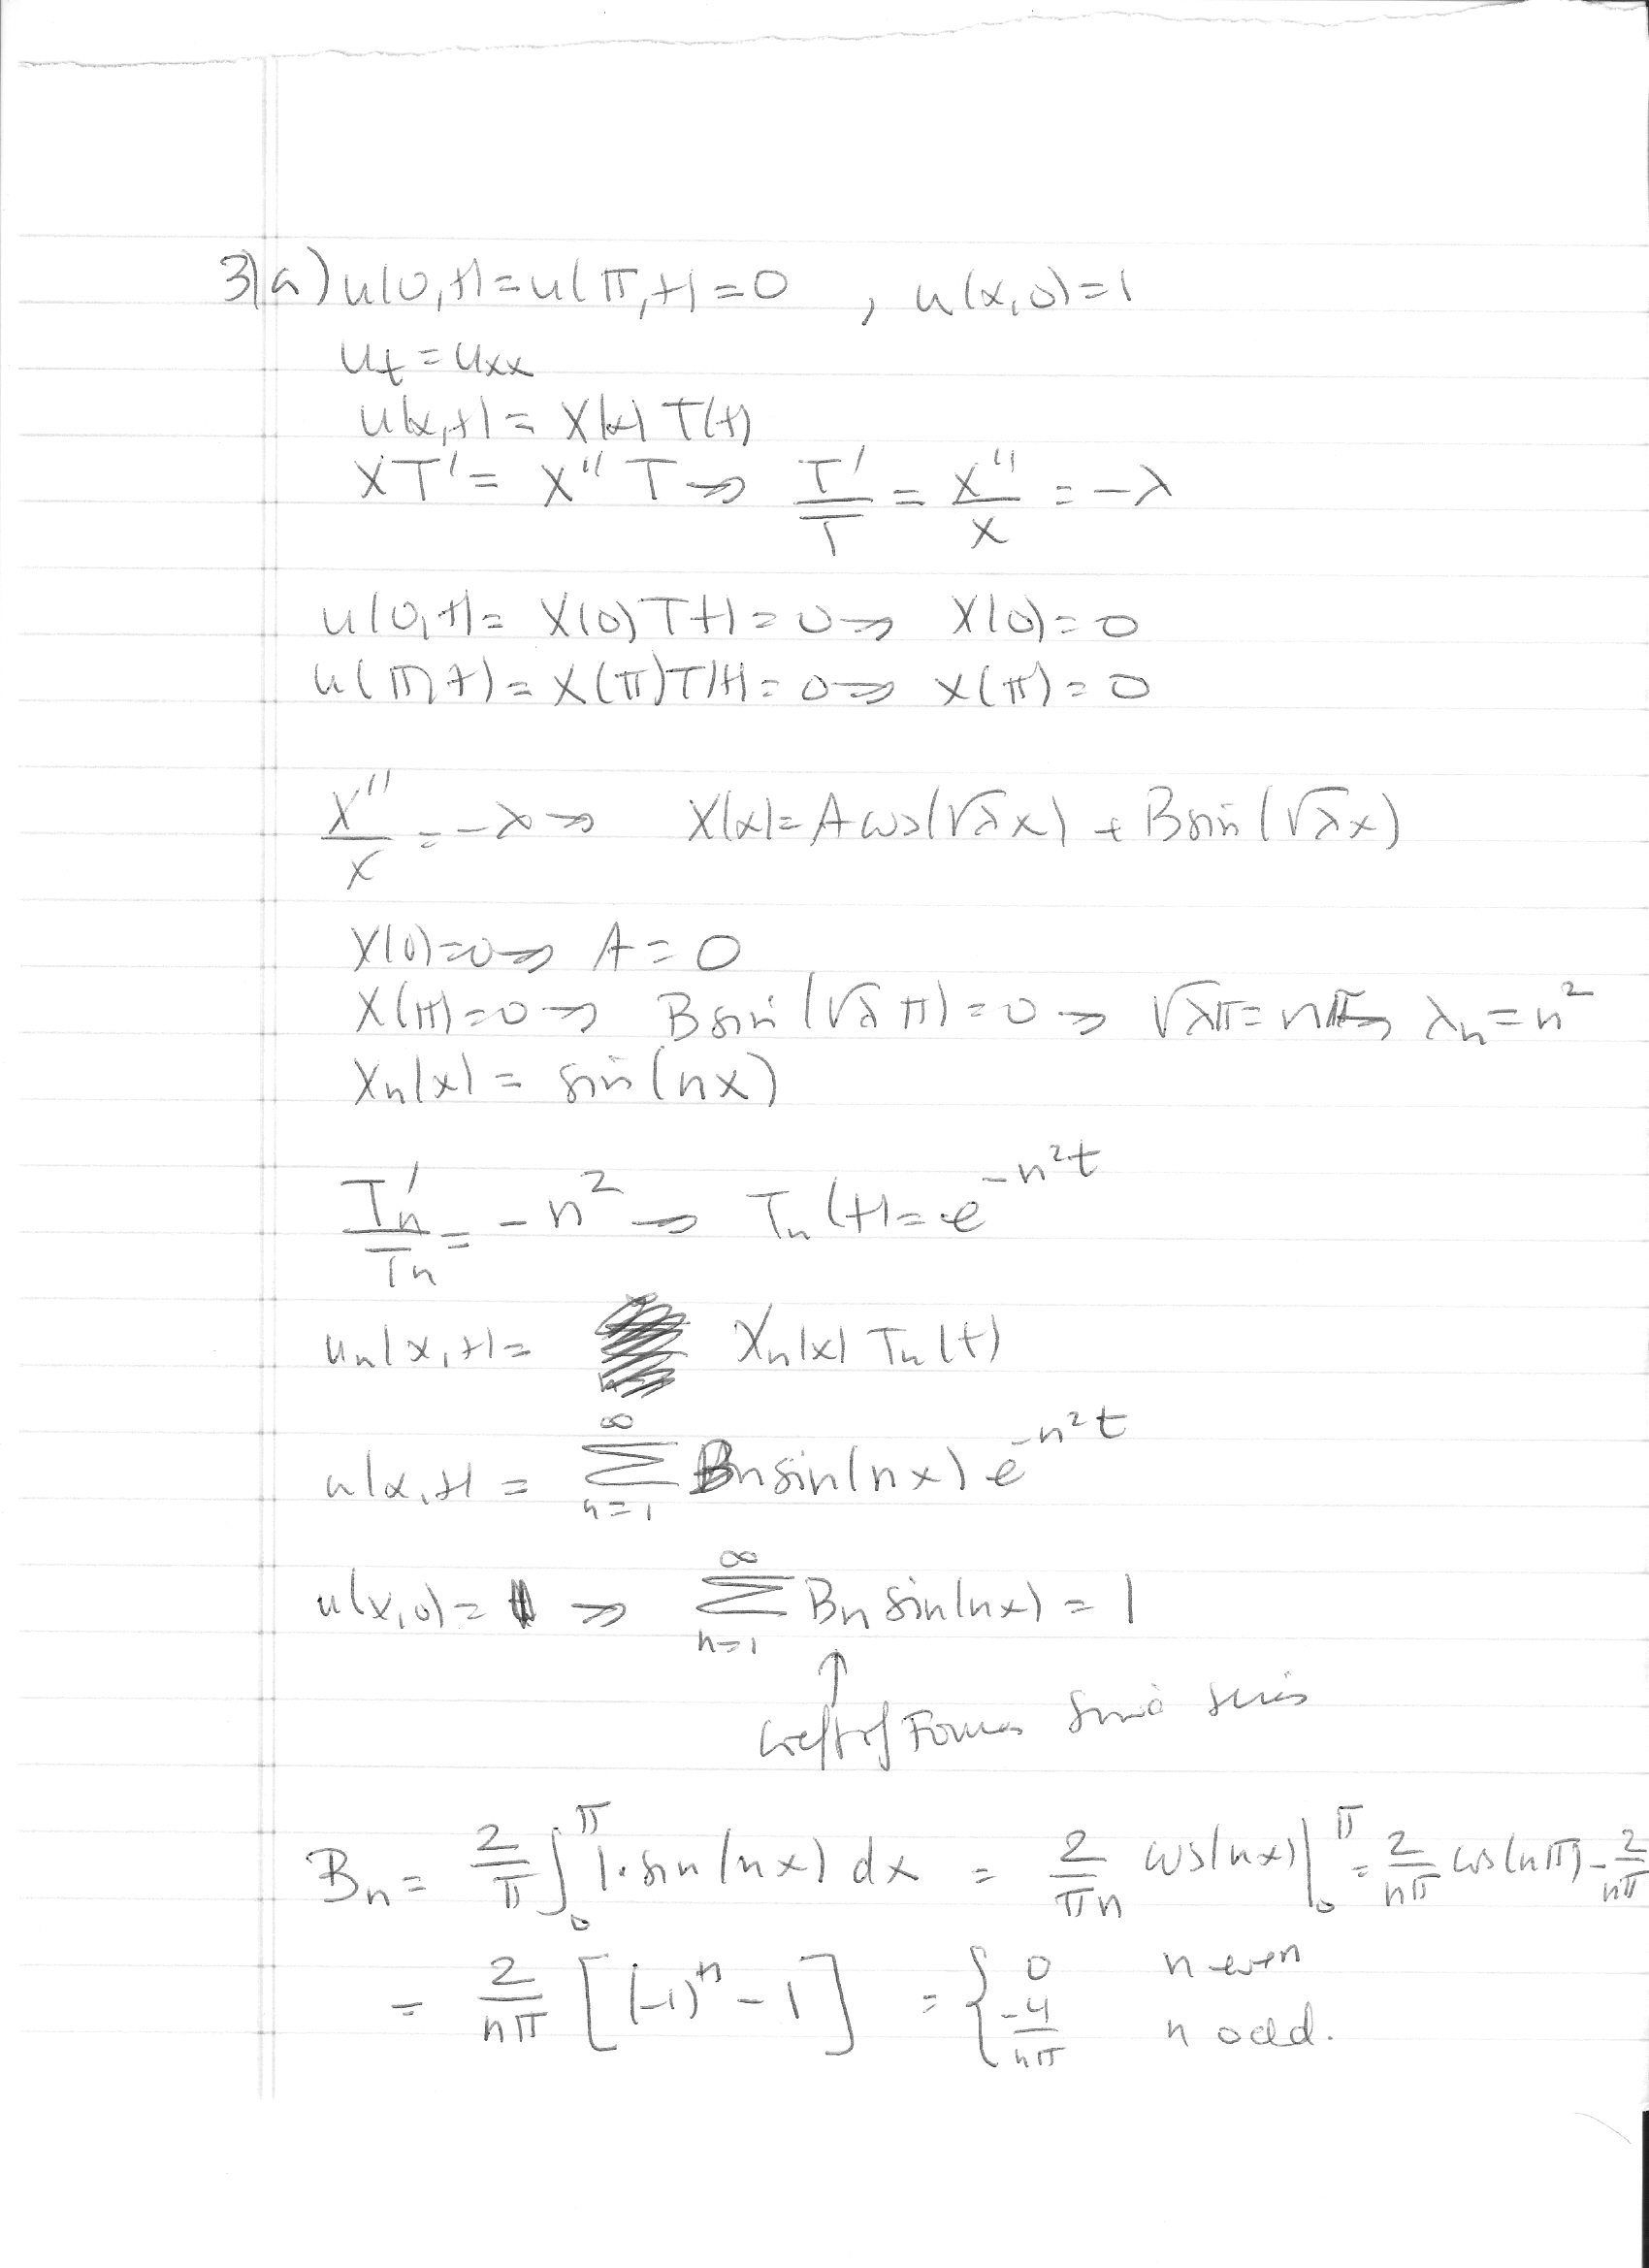 3)a) u(0,t)=u(π,t)=0 , u(x,0)=1
u_t = u_xx
u(x,t) = X(x) T(t)
XT' = X''T ⇒ T'/T = X''/X = -λ
u(0,t) = X(0) T(t) = 0 ⇒ X(0) = 0
u(π,t) = X(π)T(t) = 0 ⇒ X(π) = 0
X''/X = -λ ⇒ X(x) = A cos(√λx) + B sin(√λx)
X(0)=0 ⇒ A = 0
X(π)=0 ⇒ B sin(√λ π) = 0 ⇒ √λπ = nπ ⇒ λ_n = n²
X_n(x) = sin(nx)
T_n'/T_n = -n² ⇒ T_n(t) = e^{-n²t}
u_n(x,t) = X_n(x) T_n(t)
u(x,t) = ∑_{n=1}^{∞} B_n sin(nx) e^{-n²t}
u(x,0) = 1 ⇒ ∑_{n=1}^{∞} B_n sin(nx) = 1
↑
coeff of Fourier sine series
B_n = 2/π ∫_0^π 1·sin(nx) dx = 2/πn cos(nx)|_0^π = 2/nπ cos(nπ) - 2/nπ
= 2/nπ [(-1)^n - 1] = { 0 n even
-4/nπ n odd.